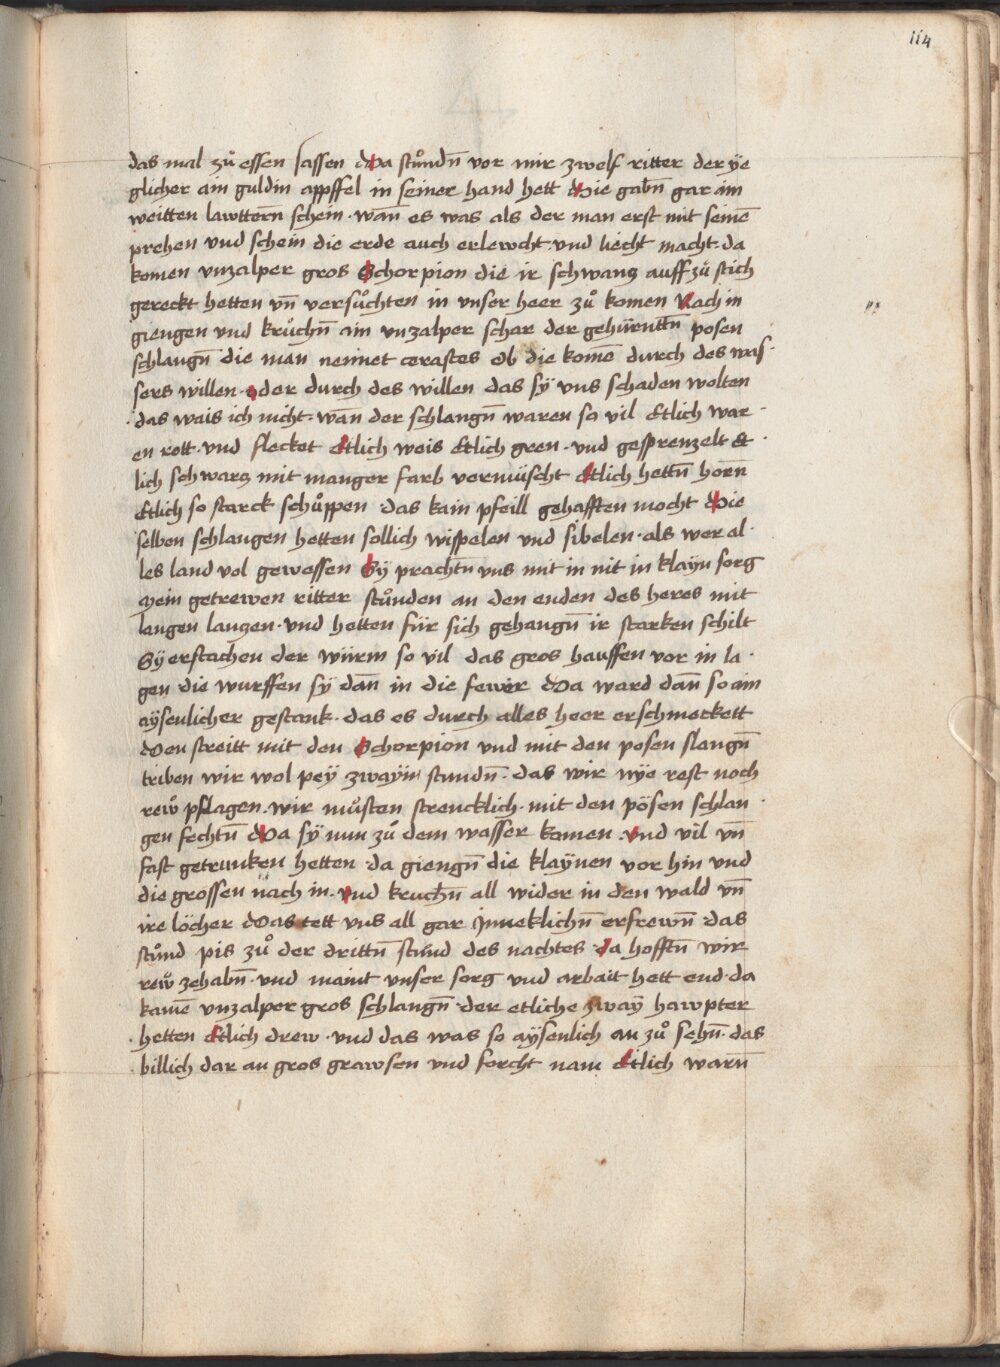 114
das mal zů essen sassen Da stůndn̄ vor mir zwelf ritter der ÿe
glicher ain guldin appffel in seiner hand hett Die gabn̄ gar ain
weitten lawttern̄ schein · wan̄ es was als der man erst mit seinē
prehen vnd schein die erde auch erlewcht · vnd liecht macht · da
komen vnzalper gros Schorpion die ir schwancz auff zů stich
gereckt hetten vn̄ versůchten in vnser heer zů komen Nach in
giengen vnd krůchn̄ ain vnzalper schar der gehürnttn̄ posen
schlangn̄ die man nennet cerastes Ob die komē durch des was
sers willen · oder durch des willen das sÿ vns schaden wolten
das wais ich nicht · wan̄ der schlangn̄ waren so vil Etlich war
en rott · vnd flecket Etlich weis Etlich gren · vnd gesprenzelt Et
lich schwarcz mit manger farb vermüscht Etlich hettn̄ horn̄
Etlich so starck schůppen · das kain pfeill gehafften mocht Die
selben schlangen hetten sollich wispelen vnd sibelen · als wer al
les land vol gewessen Sÿ prachtn̄ vns mit in nit in klayn sorg
Mein getrewen ritter stůnden an den enden des heres mit
langen lanczen · vnd hetten für sich gehangn ir starken schilt
Sÿ erstachen der würm so vil das gros hauffen vor in la
gen die wurffen sÿ dan̄ in die fewer Da ward dan̄ so ain
aÿsenlicher gestank · das es durch alles heer erschmeckett
Den streitt mit den Schorpion vnd mit den posen slangn̄
triben wir wol peÿ zwayin stundn̄ · das wir nÿe rest noch
reẘ pflagen · wir můsten strencklich · mit den pösen schlan
gen fechtn̄ Da sÿ nun zů dem wasser komen · vnd vil vn̄
fast getruncken hetten · da giengn̄ die klaÿnen vor hin vnd
die grossen nach in · vnd kruchn̄ all wider in den wald vn̄
ire löcher Das tett vns all gar Inneklichn̄ erfrewn̄ das
stůnd pis zů der drittn̄ stund des nachtes · da hofftn̄ wir
reẘ zehabn̄ · vnd maint vnser sorg vnd arbait hett end · da
kamē vnzalper gros schlangn̄ · der etliche zway hawpter
hetten Etlich drew · vnd das was so aÿsenlich an zů sehn̄ · das
billich dar an gros grawsen vnd forcht nam Etlich warn̄